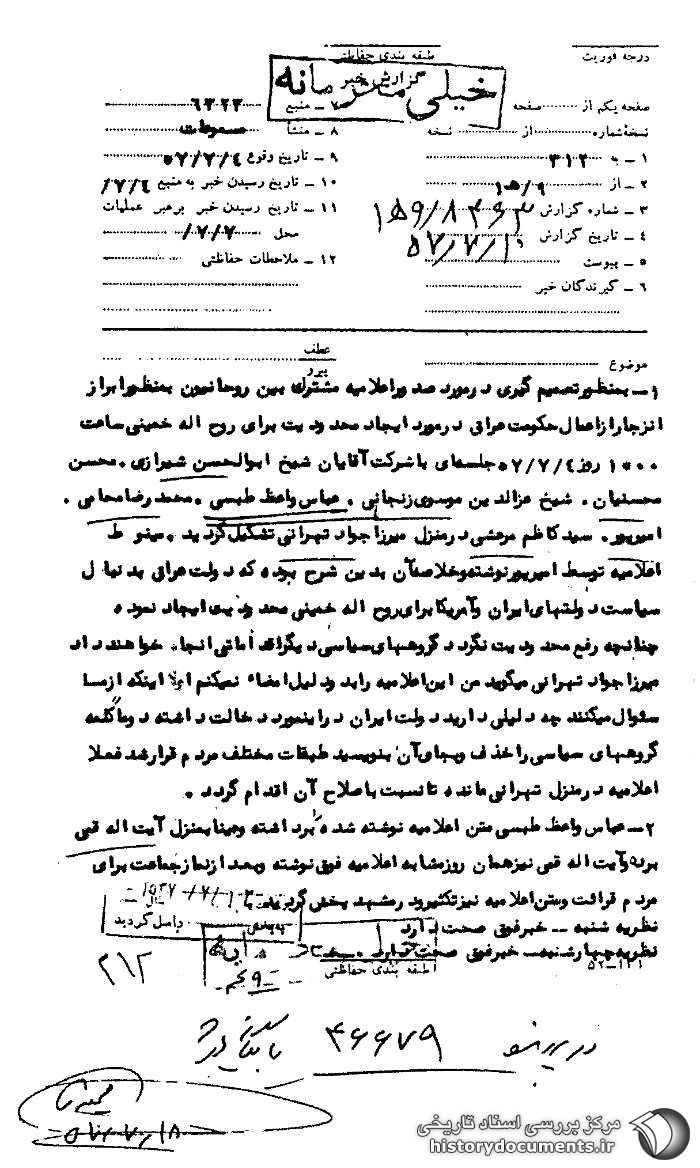 درجه فوریت
طبقه بندی حفاظتی
گزارش خبر
خیلی محرمانه
صفحه یکم از صفحه
نسخه شماره از نسخه
۱ - به ۳۱۲
۲ - از ۹/ه۱
۳ - شماره گزارش
۴ - تاریخ گزارش
۵ - پیوست
۶ - گیرندگان خبر
۷ - منبع ۶۳۲۳
۸ - منشأ مسموعات
۹ - تاریخ وقوع ۵۷/۷/۴
۱۰ - تاریخ رسیدن خبر به منبع ۷/۴/
۱۱ - تاریخ رسیدن خبر برهبر عملیات
محل ۷/۷/
۱۲ - ملاحظات حفاظتی
موضوع
عطف
پیرو
۱- بمنظور تصمیم گیری در مورد صدور اعلامیه مشترک بین روحانیون بمنظور ابراز
انزجار از اعمال حکومت عراق در مورد ایجاد محدودیت برای روح اله خمینی ساعت
۱۰۰۰ روز ۵۷/۷/۴ جلسه‌ای با شرکت آقایان شیخ ابوالحسن شیرازی . محسن
محسنیان . شیخ عزالدین موسوی زنجانی . عباس واعظ طبسی . محمد رضا محامی .
امیرپور . سید کاظم مرعشی در منزل میرزا جواد تهرانی تشکیل گردید .
اعلامیه توسط امیرپور نوشته و خلاصه آن بدین شرح بوده که دولت عراق بدنبال
سیاست دولتهای ایران و آمریکا برای روح اله خمینی محدودیت ایجاد نموده
چنانچه رفع محدودیت نگردد گروههای سیاسی دیگر اقداماتی انجام خواهند داد
میرزا جواد تهرانی میگوید من این اعلامیه را بدو دلیل امضاء نمیکنم اولا اینکه از ما
سئوال میکنند چه دلیلی دارید دولت ایران در اینمورد دخالت داشته دوما کلمه
گروههای سیاسی را حذف و بجای آن بنویسید طبقات مختلف مردم قرار شد فعلا
اعلامیه در منزل تهرانی مانده تا نسبت باصلاح آن اقدام گردد .
۲- عباس واعظ طبسی متن اعلامیه نوشته شده را برداشته و عینا بمنزل آیت اله قمی
برده و آیت اله قمی نیز همان روز مشابه اعلامیه فوق نوشته و بعد از نماز جماعت برای
مردم قرائت و متن اعلامیه نیز تکثیر و در مشهد پخش گردید .
نظریه شنبه -- خبر فوق صحت دارد
نظریه چهارشنبه -- خبر فوق صحت دارد .
واصل گردید
طبقه بندی حفاظتی
۳۱۲
۴۶۶۷۹
مرکز بررسی اسناد تاریخی
historydocuments.ir